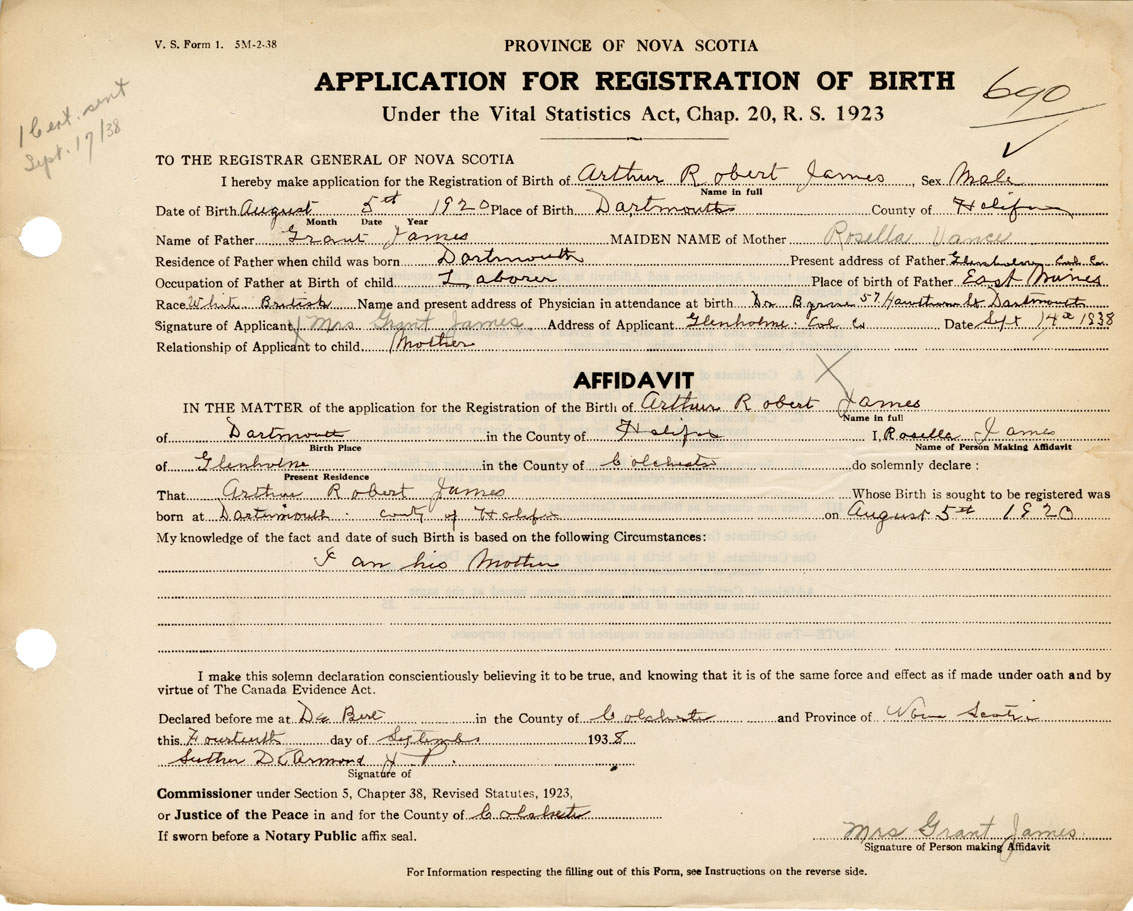 V. S. Form 1. 5M-2-38
PROVINCE OF NOVA SCOTIA
APPLICATION FOR REGISTRATION OF BIRTH
690
Under the Vital Statistics Act, Chap. 20, R. S. 1923
1 Cert. sent
Sept. 17/38
TO THE REGISTRAR GENERAL OF NOVA SCOTIA
I hereby make application for the Registration of Birth of Arthur Robert James, Sex Male
Name in full
Date of Birth August 5th 1920 Place of Birth Dartmouth County of Halifax
Month Date Year
Name of Father Grant James MAIDEN NAME of Mother Rosella Vance
Residence of Father when child was born Dartmouth Present address of Father Glenholme Col. Co.
Occupation of Father at Birth of child Laborer Place of birth of Father East Mines
Race White British Name and present address of Physician in attendance at birth Dr Byrne 57 St Dartmouth
Signature of Applicant X Mrs Grant James Address of Applicant Glenholme: Col Co Date Sept 14th 1938
Relationship of Applicant to child Mother
AFFIDAVIT X
IN THE MATTER of the application for the Registration of the Birth of Arthur Robert James
Name in full
of Dartmouth in the County of Halifax I, Rosella James
Birth Place Name of Person Making Affidavit
of Glenholme in the County of Colchester do solemnly declare :
Present Residence
That Arthur Robert James Whose Birth is sought to be registered was
born at Dartmouth County of Halifax on August 5th 1920
My knowledge of the fact and date of such Birth is based on the following Circumstances:
I am his Mother
I make this solemn declaration conscientiously believing it to be true, and knowing that it is of the same force and effect as if made under oath and by
virtue of The Canada Evidence Act.
Declared before me at De Bert in the County of Colchester and Province of Nova Scotia
this Fourteenth day of September 1938
Luther DeArmond J. P.
Signature of
Commissioner under Section 5, Chapter 38, Revised Statutes, 1923,
or Justice of the Peace in and for the County of Colchester
If sworn before a Notary Public affix seal.
Mrs Grant James
Signature of Person making Affidavit
For Information respecting the filling out of this Form, see Instructions on the reverse side.